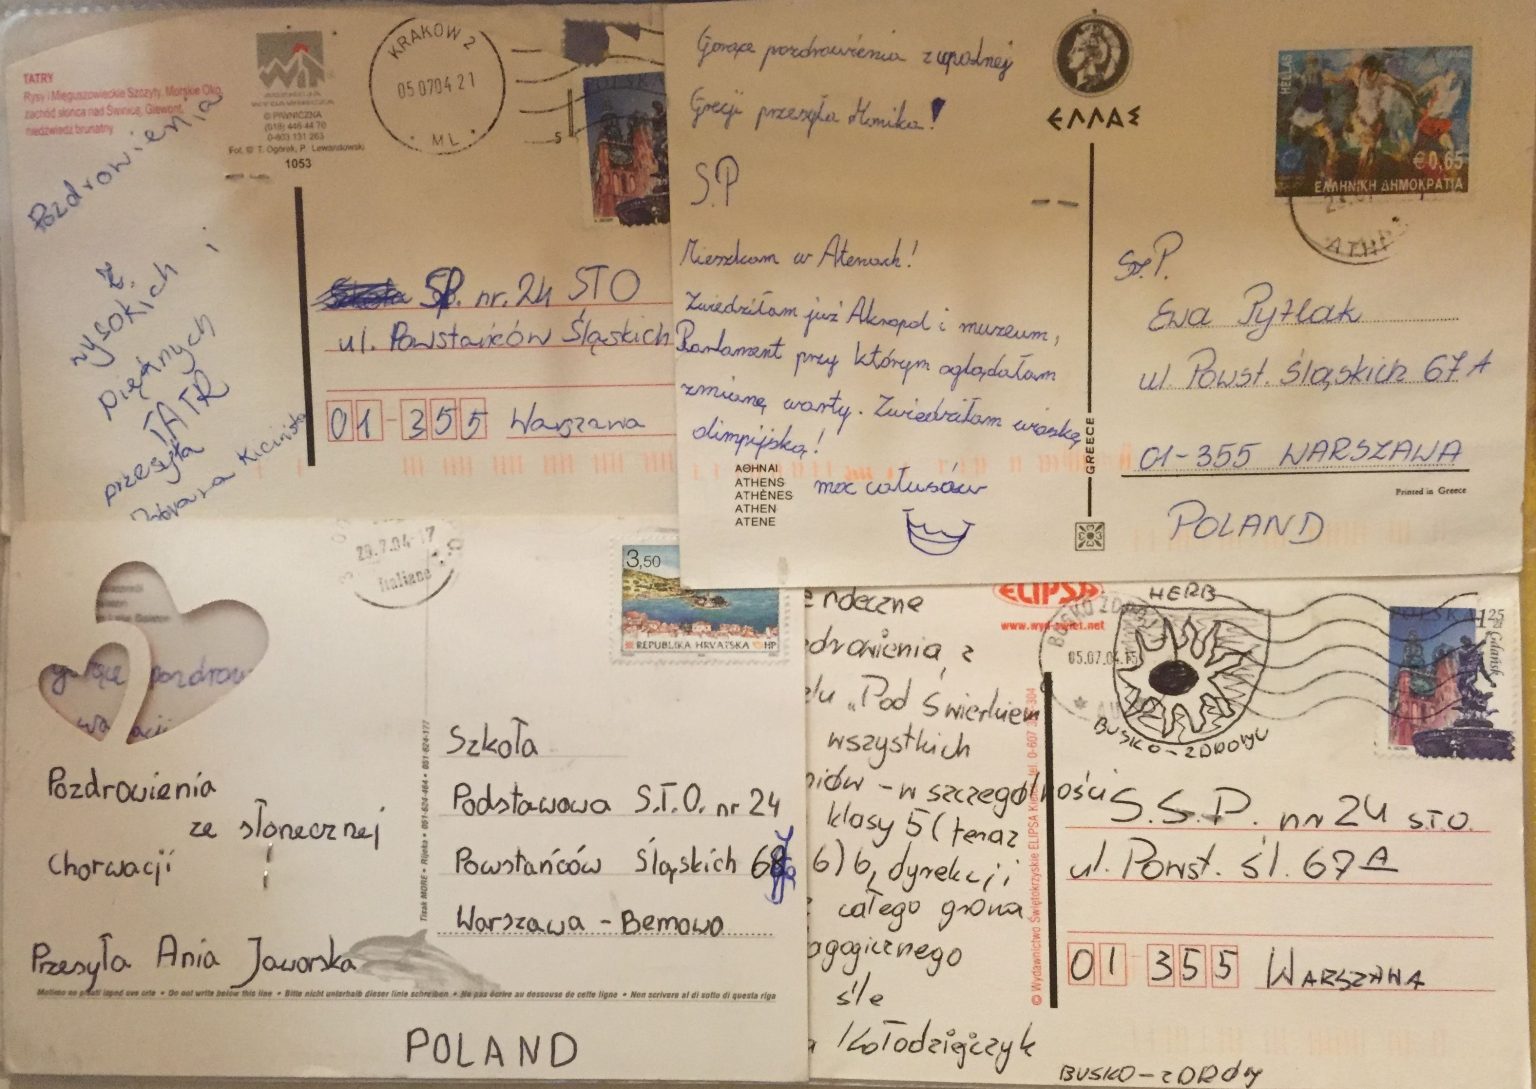 TATRY
Rysy i Mięguszowieckie Szczyty, Morskie Oko,
zachód słońca nad Świnicą, Giewont,
niedźwiedź brunatny
WIT
AGENCJA
WYDAWNICZA
PIWNICZNA
(018) 446 44 70
0-603 131 263
Fot. © T. Ogórek, P. Lewandowski
1053
KRAKÓW 2
05 0704 21
ML
Pozdrowienia
z
wysokich i
pięknych
TATR
przesyła
Kicińska
SP. nr. 24 STO
ul. Powstańców Śląskich
01-355 Warszawa
Gorące pozdrowienia z upalnej
Grecji przesyła Monika!
S.P
Mieszkam w Atenach!
Zwiedziłam już Akropol i muzeum,
Parlament przy którym oglądałam
zmianę warty. Zwiedziłam wioskę
olimpijską!
moc całusów
ΑΘΗΝΑΙ
ATHENS
ATHÈNES
ATHEN
ATENE
ΕΛΛΑΣ
GREECE
HELLAS
€0,65
ΕΛΛΗΝΙΚΗ ΔΗΜΟΚΡΑΤΙΑ
Sz.P.
Ewa Pytlak
ul. Powst. Śląskich 67 A
01-355 WARSZAWA
Printed in Greece
POLAND
29.7.04-17
3,50
REPUBLIKA HRVATSKA HP
gorące pozdrow
Pozdrowienia
ze słonecznej
Chorwacji
Przesyła Ania Jaworska
Tisak MORE • Rijeka • 051-624-464 • 051-624-177
Szkoła
Podstawowa S.T.O. nr 24
Powstańców Śląskich
Warszawa - Bemowo
Molimo ne pisati ispod ove crte • Do not write below this line • Bitte nicht unterhalb dieser linie schreiben • Ne pas écrire au dessouse de cette ligne • Non scrivere al di sotto di questa riga
POLAND
ELIPSA
www.wyd-swiet.net
erdeczne
zdrowienia z
elu "Pod Świerkiem
wszystkich
niów - w szczególności
klasy 5 (teraz
6) b, dyrekcji
całego grona
agogicznego
śle
Kołodziejczyk
© Wydawnictwo Świętokrzyskie ELIPSA
BUSKO ZDRÓJ
05.07.04
HERB
BUSKO-ZDROJU
POLSKA 1,25 ZŁ
Gdańsk
S.S.P. nr 24 STO.
ul. Powst. Śl. 67 A
01-355 WARSZAWA